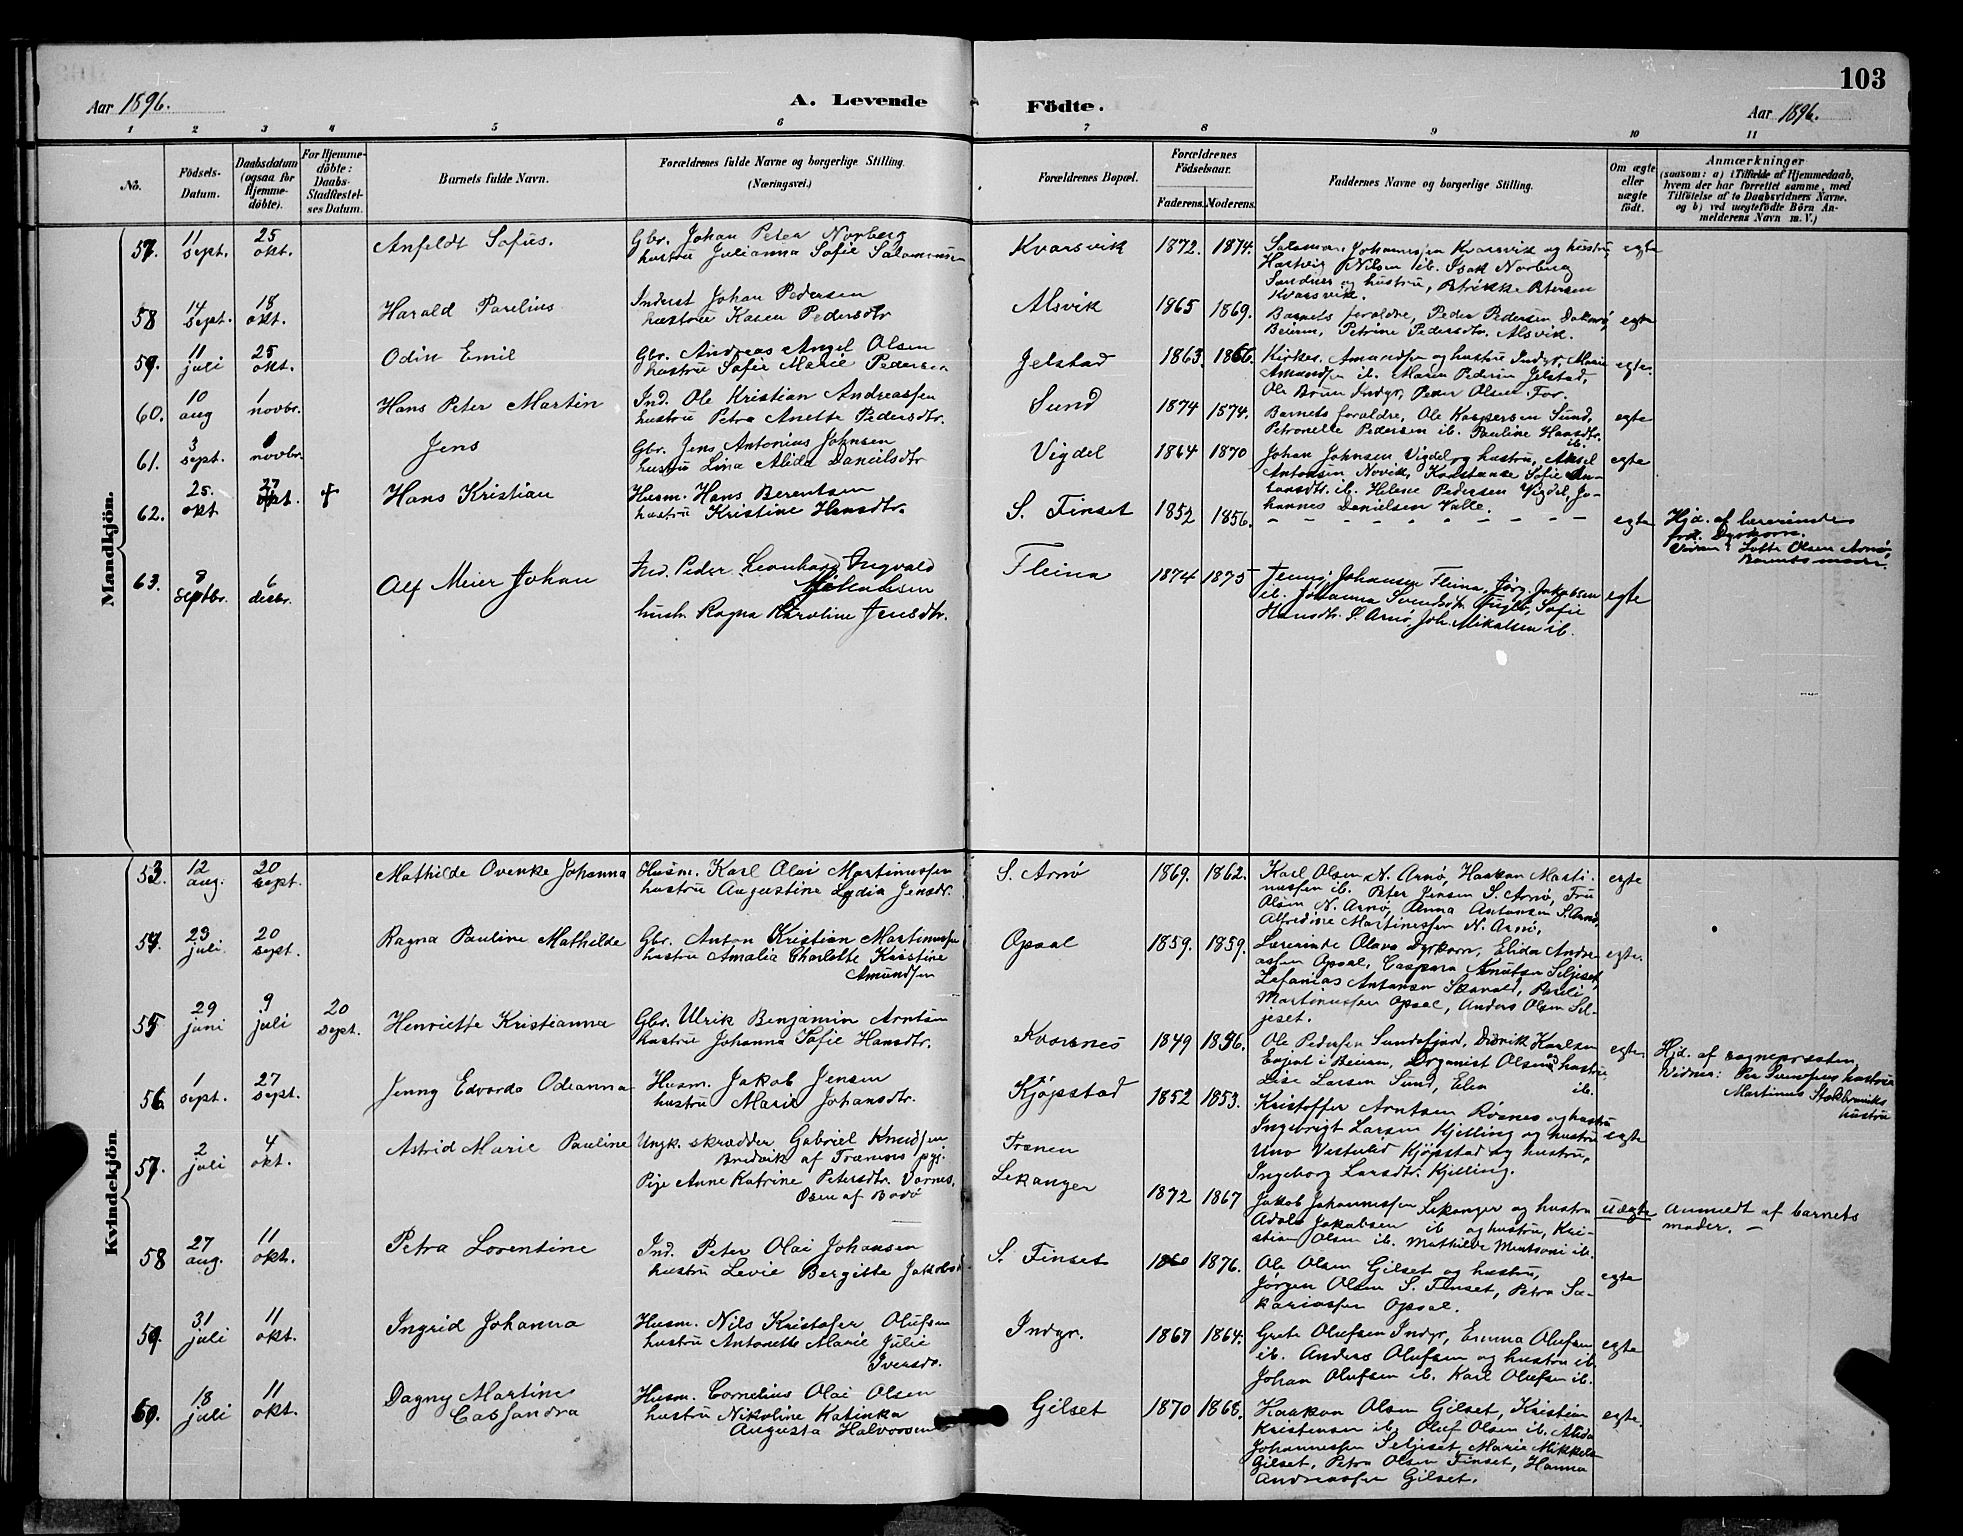 103
Aar 1896.
A. Levende Födte.
Aar 1896.
1 2 3 4 5 6 7 8 9 10 11
No.
Födsels-Datum.
Daabsdatum (ogsaa for Hjemme-döbte).
For Hjemme-döbte: Daabs-Stadfæstel-ses Datum.
Barnets fulde Navn.
Forældrenes fulde Navne og borgerlige Stilling.
(Næringsvei.)
Forældrenes Bopæl.
Forældrenes Födselsaar.
Faderens. Moderens.
Faddernes Navne og borgerlige Stilling.
Om ægte eller uægte födt.
Anmærkninger
(saasom: a) i Tilfælde af Hjemmedaab, hvem der har forrettet samme, med Tilföielse af to Daabsvidners Navne. og b) ved uægtefödte Börn An-melderens Navn m. V.)
Mandkjön.
57. 11 sept. 25 okt. Anfeldt Sofus. Gbr. Johan Peter Norberg
hustru Julianna Sofie Salomonsen
Kvarsvik 1872. 1874. Salamon Johannesen Kvarsvik og hustru, egte
Hartvig Nilsen ib. Isak Norberg
Sandnes og hustru, Btrikke Petersen
Kvarsvik.
58 14 sept. 18 okt. Harald Parelius Inderst Johan Pedersen
hustru Karen Pedersdtr
Alsvik 1865 1869. Barnets forældre, Peder Pedersen egte
Beiern, Petrine Pedersdtr. Alsvik.
59. 11 juli 25 okt. Odin Emil Gbr. Andreas Angel Olsen
hustru Sofie Marie Pedersen
Jelstad 1863. 1866. Kirkes. Amundsen og hustru Indyr, Marie egte.
Amundsen ib. Maren Pedersen Jelstad,
Ole Bruun Indyr, Peder Olsen For.
60. 10 aug 1 novbr. Hans Peter Martin Ind. Ole Kristian Andreassen
hustru Petra Anette Pedersdtr.
Sund 1874 1874. Barnets forældre, Ole Kaspersen Sund, egte
Petronelle Pedersen ib. Pauline Hansdtr. ib.
61. 3 sept. 1 novbr. Jens Gbr. Jens Antonius Johnsen
hustru Lina Alida Danielsdtr
Vigdel 1864 1870 Johan Johnsen Vigdel og hustru, Aksel egte
Antonsen Novik, Konstanse Sofie An-
tonsdtr. ib. Helene Pedersen Vigdel, Jo-
hannes Danielsen Valle.
62. 25. okt 27 okt. + Hans Kristian Husm. Hans Berentsen
hustru Kristine Hansdtr.
S. Finset 1852 1856. - - - - - - - - - egte Hjd. af lærerinde
frk. Dyrkorn.
Vidner: Lotte Olsen Arnø,
Barnets moder.
63. 8 septbr. 6 desbr. Alf Meier Johan Ind. Peder Leonhard Ingvald
Mikalsen
hustr. Ragna Karoline Jensdtr.
Fleina 1874 1875 Jens Johansen Fleina, Jørg. Jakobsen egte
ib. Johanna Svendsdtr. Fugl, Sofie
Hansdtr. S. Arnø, Joh. Mikalsen ib.
Kvindekjön
53. 12 aug. 20 sept. Mathilde Ovenke Johanna Husm. Karl Olai Martinussen
hustru Augustine Lydia Jensdtr.
S. Arnø 1869. 1862. Karl Olsen N. Arnø, Haakon Marti- egte
nussen ib. Peter Jensen S. Arnø, Fru
Olsen N. Arnø, Anna Antonsen S. Arnø,
Alfredine Martinussen N. Arnø,
54. 23 juli. 20 sept. Ragna Pauline Mathilde Gbr. Anton Kristian Martinussen
hustru Amalia Charlotte Kristine
Amundsen
Opsal 1859. 1859. Lærerinde Olava Dyrkorn, Elida Andre- egte.
assen Opsal, Caspara Knutsen Seljeset,
Zefanias Antonsen Skavold, Pauli
Martinussen Opsal, Anders Olsen Sel-
jeset.
55 29 juni 9 juli 20 sept. Henriette Kristianna Gbr. Ulrik Benjamin Arntsen
hustru Johanna Sofie Hansdtr.
Kvarsnes 1849 1856. Ole Pedersen Sundsfjord, Didrik Karlsen egte. Hjd. af sognepræsten,
Evjen i Beiern, Organist Olsen og hustru, Vidner: Per hustru
Lise Larsen Sund, Elen ib. Martinus Stokbroniks hustru
56. 1 sept. 27 sept. Jenny Edvarda Odianna Husm. Jakob Jensen
hustru Marie Johansdtr.
Kjøpstad 1852 1853. Kristoffer Arntsen Røsnes og hustru egte
Ingebrigt Larsen Kjelling og hustru
Uno Vestulid Kjøpstad og hustru,
Ingeborg Larsdtr. Kjelling.
57. 2 juli 4 okt. Astrid Marie Pauline Ungk. skrædder Gabriel Knudsen
Bredvik af Trænens pgj.
Pige Anne Katrine Petersdtr. Varnes,
Osen af Bodø
Trænen
Lekanger 1872 1867 Jakob Johannessen Lekanger og hustru uægte Anmeldt af barnets
Adolo Jakobsen ib og hustru, Kri- moder. -
stian Olsen ib. Mathilde Mentsoni ib.
58 27 aug. 11 okt. Petra Lorentine Ind. Peter Olai Johansen
hustru Levie Bergitte Jakobsd
S. Finset 1860 1876. Ole Olsen Gilset og hustru, egte
Jørgen Olsen S. Finset, Petra Sa-
kariassen Opsal.
59. 31 juli 11 okt. Ingrid Johanna Husm. Nils Kristofer Olufsen
hustru Antonette Marie Julie
Iversdtr.
Indyr. 1867 1864. Grete Olufsen Indyr, Emma Olufsen egte
ib. Anders Olufsen og hustru ib
Johan Olufsen ib. Karl Olufsen ib.
60. 18 juli 11 okt. Dagny Martine
Cassandra
Husm. Cornelius Olai Olsen
hustru Nikoline Katinka
Augusta Halvorsen
Gilset 1870 1868. Haakon Olsen Gilset, Kristian egte.
Kristensen ib. Oluf Olsen ib. Alida
Johannessen Seljeset, Marie Mikkelsen
Gilset, Petra Olsen Finset, Hanna
Andreassen Gilset.